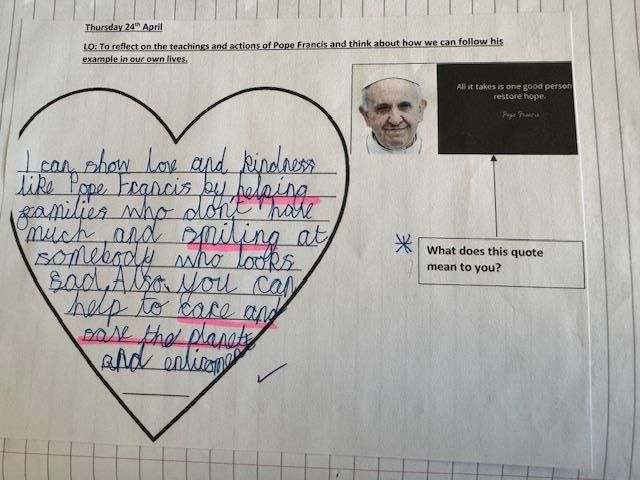 Thursday 24th April
LO: To reflect on the teachings and actions of Pope Francis and think about how we can follow his
example in our own lives.
All it takes is one good person
restore hope.
Pope Francis
I can show love and kindness
like Pope Francis by helping
families who don't have
much and smiling at
somebody who looks
sad. Also, you can
help to care and
save the planet
and enliroment
What does this quote
mean to you?